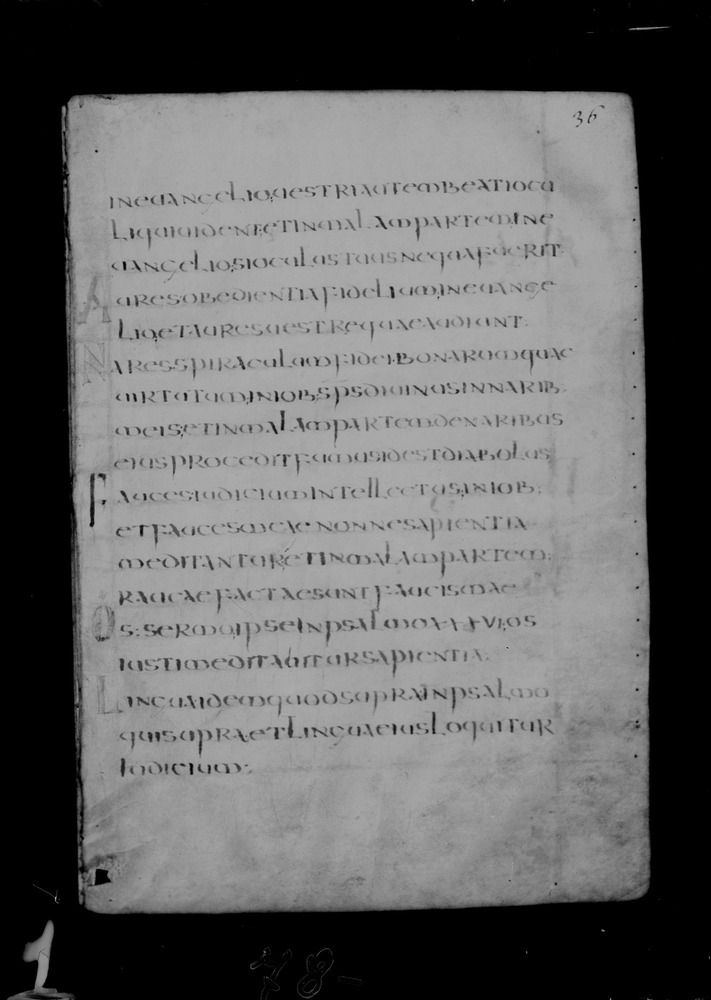 36
INEUANGELIO,UESTRIAUTEMBEATIOCU
LIQUIUIDENT,ETINMALAMPARTEM,INE
UANGELIO,SIOCULUSTUUSNEQUAFUERIT
AURESOBEDIENTIAFIDELIUM,INEUANGE
LIO,ETAURESUESTREQUAEAUDIUNT.
NARESSPIRACULAMFIDEI,BONARUMQUAE
UIRTUTUM,INIOB,SPSDIUINUSINNARIB.
MEIS,ETINMALAMPARTEMDENARIBUS
EIUSPROCEDITFUMUSIDESTDIABOLUS,
FAUCESIUDICIUMINTELLECTUS,INIOB;
ETFAUCESMEAENONNESAPIENTIA
MEDITANTURETINMALAMPARTEM;
RAUCAEFACTAESUNTFAUCISMAE
OS:SERMOIPSEINPSALMOXXXVI,OS
IUSTIMEDITABITURSAPIENTIA.
LINGUAIDEMQUODSUPRAINPSALMO
QUISUPRAETLINGUAEIUSLOQUITUR
IUDICIUM;
1
78-